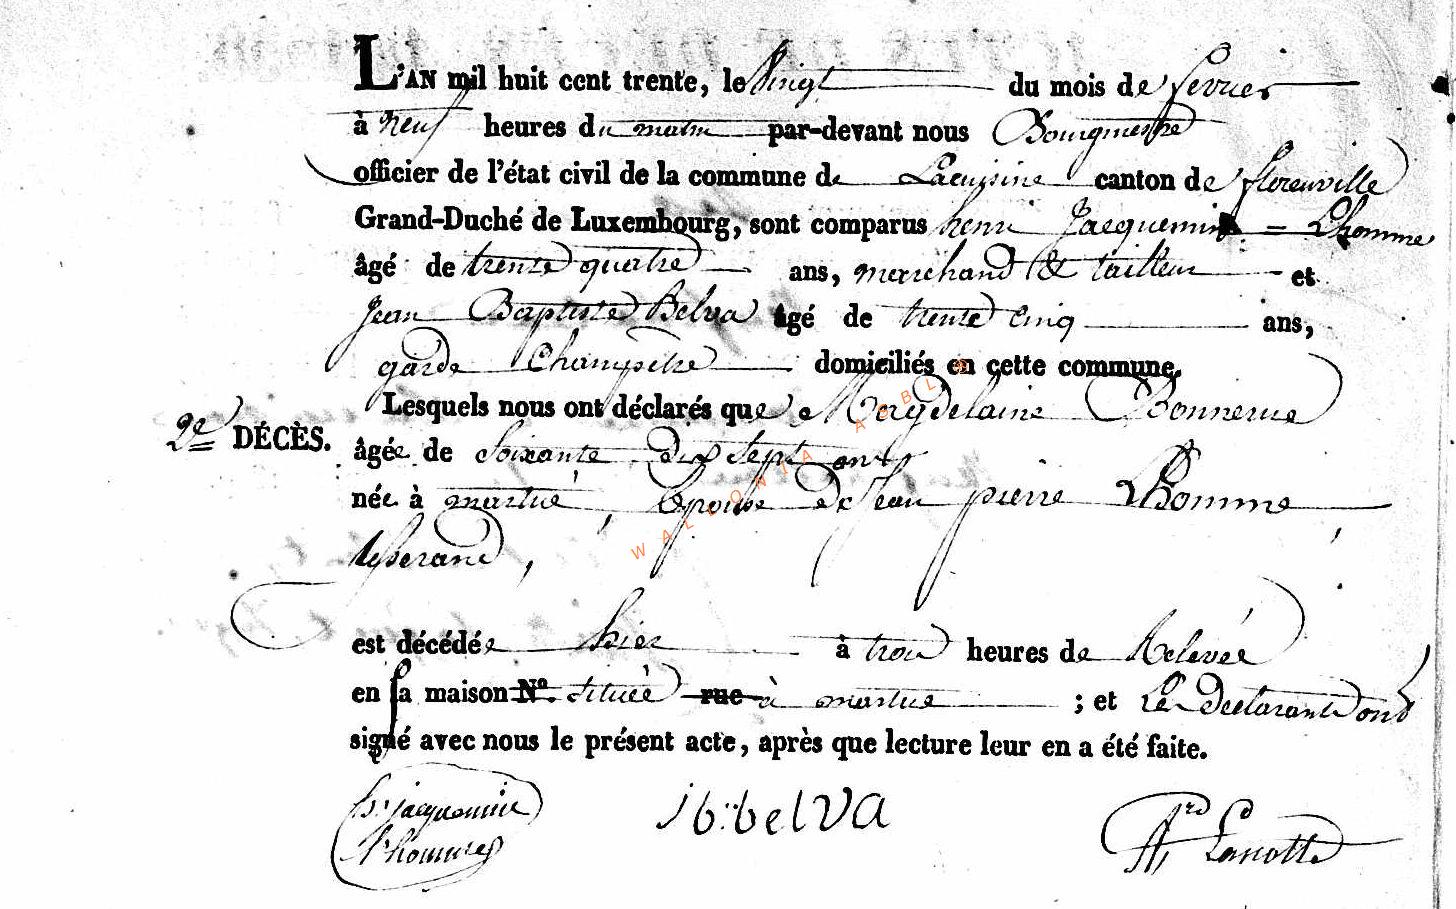 L'AN mil huit cent trente, le vingt du mois de fevrier
à neuf heures du matin par-devant nous Bourgmestre
officier de l'état civil de la commune de Lacuisine canton de florenville
Grand-Duché de Luxembourg, sont comparus henri Jacquemin = Lhomme
âgé de trente quatre ans, marchand & tailleur et
Jean Baptiste Belva âgé de trente cinq ans,
garde Champêtre domiciliés en cette commune.
Lesquels nous ont déclarés que Magdelaine Bonnerue
2e DÉCÈS.
âgée de soixante dix sept ans
née à martué, Epouse de Jean pierre Lhomme,
tisserand,
est décédée hier à trois heures de Relevée
en sa maison N° située rue à martué ; et Les Déclarants ont
signé avec nous le présent acte, après que lecture leur en a été faite.
h. jacquemin
lhomme
jb:belva
Lanotte
WALLONIA ASBL